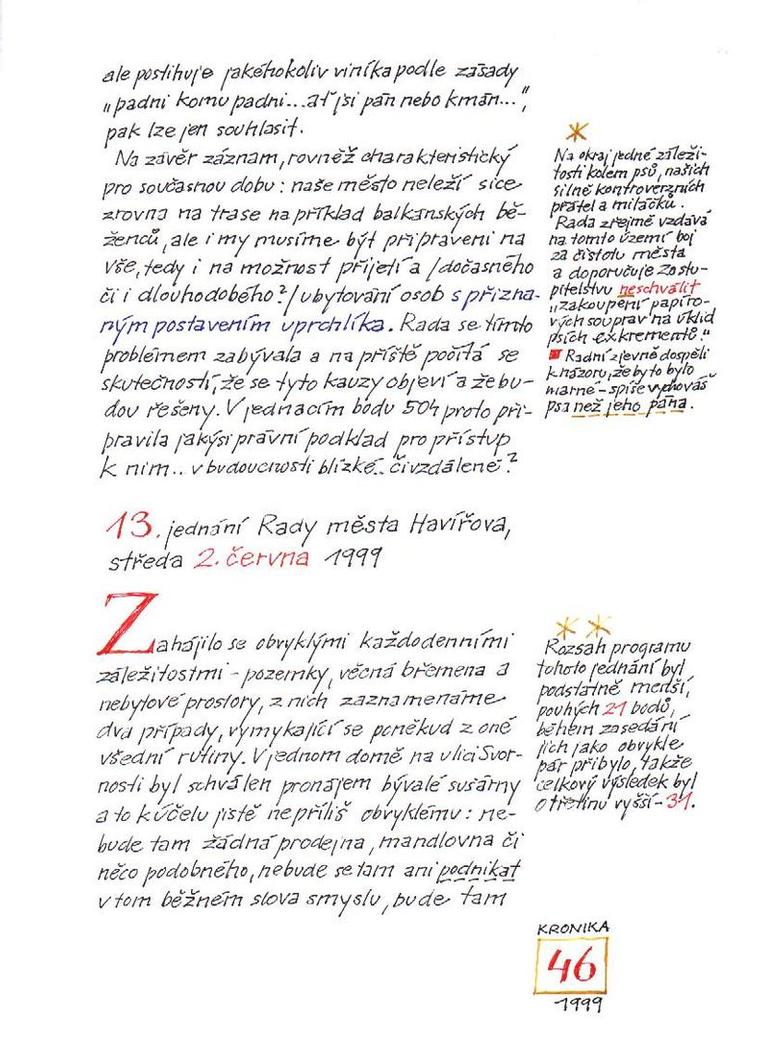 ale postihuje jakéhokoliv viníka podle zásady
„padni komu padni...ať jsi pán nebo kmán...",
pak lze jen souhlasit.
Na závěr záznam, rovněž charakteristický
pro současnou dobu: naše město neleží sice
zrovna na trase například balkánských bě-
ženců, ale i my musíme být připraveni na
vše, tedy i na možnost přijetí a /dočasného
či i dlouhodobého?/ ubytování osob s přizna-
ným postavením uprchlíka. Rada se tímto
problémem zabývala a na příště počítá se
skutečností, že se tyto kauzy objeví a že bu-
dou řešeny. V jednacím bodu 504 proto při-
pravila jakýsi právní podklad pro přístup
k nim.. v budoucnosti blízké.. či vzdálené?
*
Na okraj jedné záleži-
tosti kolem psů, našich
silně kontroverzních
přátel a miláčků.
Rada zřejmě vzdává
na tomto území boj
za čistotu města
a doporučuje Zastu-
pitelstvu neschválit
„zakoupení papíro-
vých souprav na úklid
psích exkrementů."
Radní zjevně dospěli
k názoru, že by to bylo
marné - spíše vychováš
psa než jeho pána.
13. jednání Rady města Havířova,
středa 2. června 1999
Zahájilo se obvyklými každodenními
záležitostmi - pozemky, věcná břemena a
nebytové prostory, z nich zaznamenáme
dva případy, vymykající se poněkud z oné
všední rutiny. V jednom domě na ulici Svor-
nosti byl schválen pronájem bývalé sušárny
a to k účelu jistě nepříliš obvyklému: ne-
bude tam žádná prodejna, mandlovna či
něco podobného, nebude se tam ani podnikat
v tom běžném slova smyslu, bude tam
* *
Rozsah programu
tohoto jednání byl
podstatně menší,
pouhých 21 bodů,
během zasedání
jich jako obvykle
pár přibylo, takže
celkový výsledek byl
o třetinu vyšší - 31.
KRONIKA
46
1999